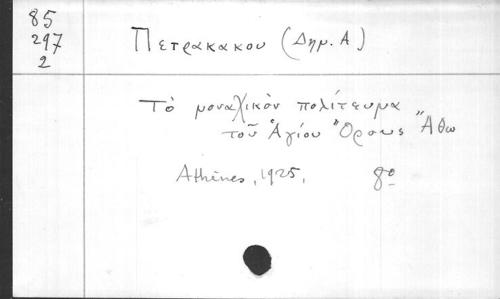 85
297
2
Πετρακακου (Δημ. Α)
Τὸ μοναχικὸν πολίτευμα
τοῦ Ἁγίου Ὄρους Ἄθω
Athènes, 1925, 8º